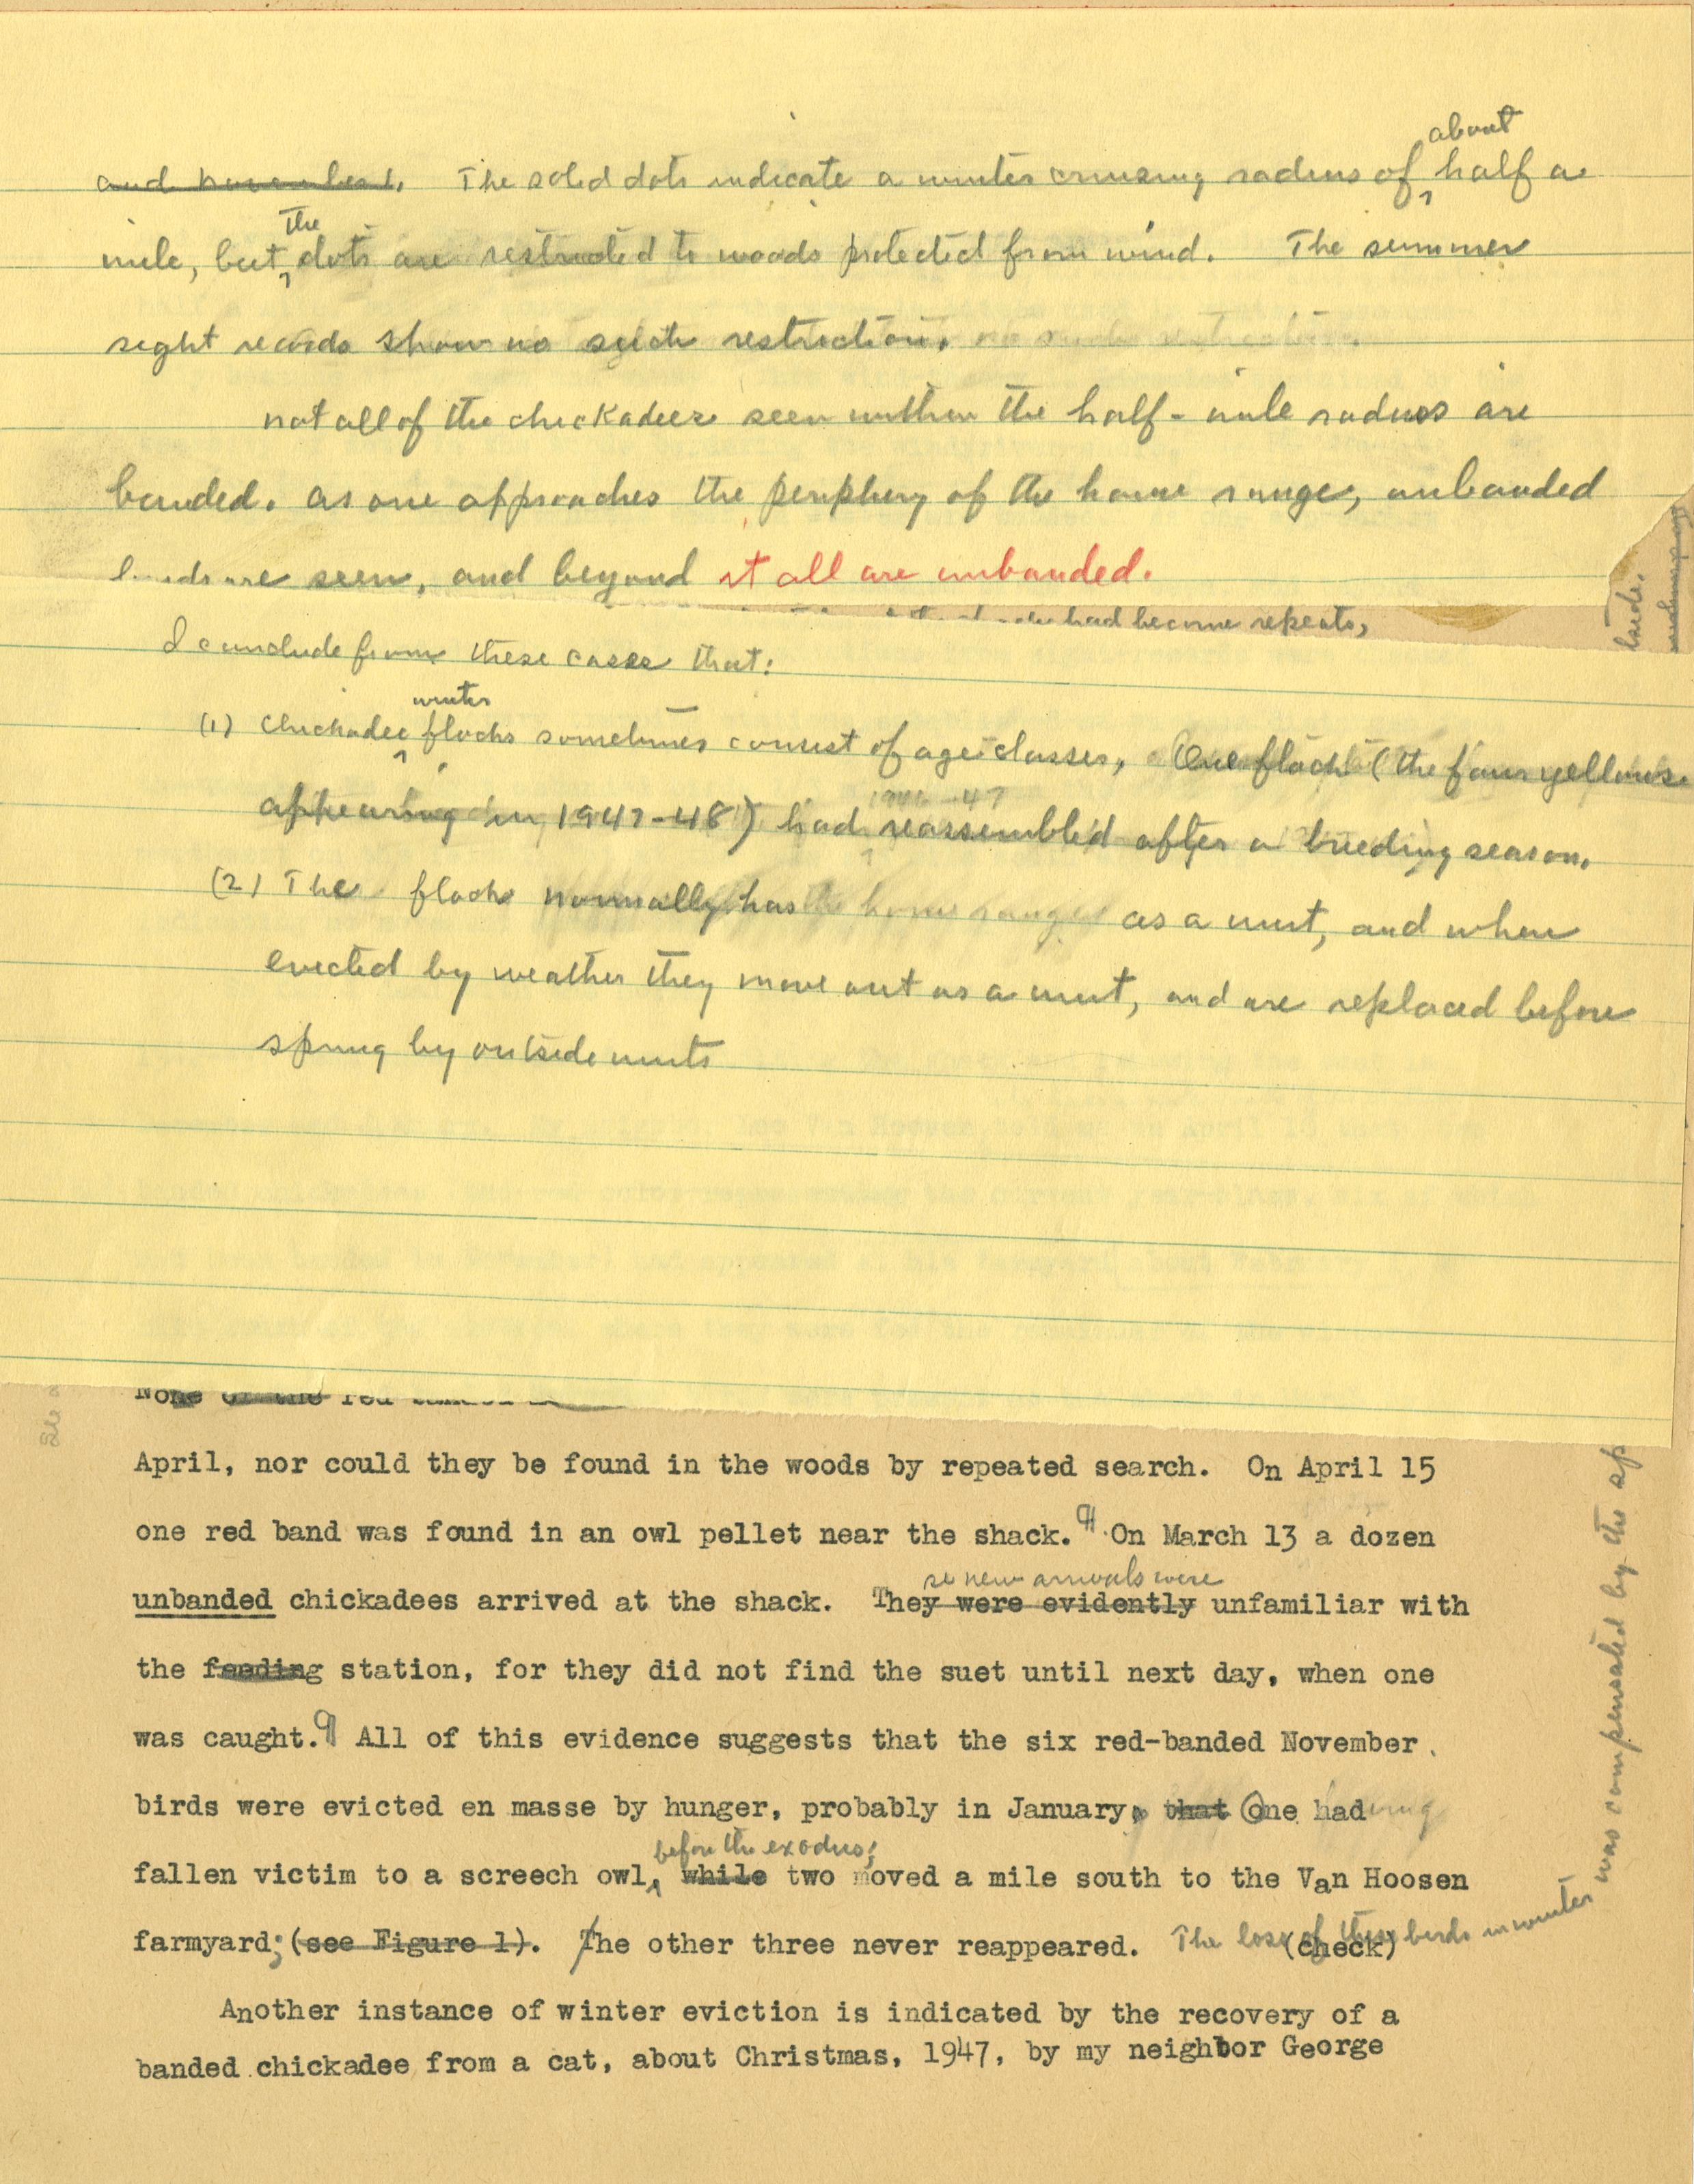 and November 1. The solid dots indicate a winter cruising radius of about half a
mile, but the dots are restricted to woods protected from wind. The summer
sight records show no such restriction.
not all of the chickadees seen within the half-mile radius are
banded. as one approaches the periphery of the home range, unbanded
birds are seen, and beyond it all are unbanded.
had become repeats,
I conclude from these cases that:
(1) Chickadee winter flocks sometimes consist of age classes, One flock (the four yellows
appearing in 1947-48) had reassembled after a breeding season.
(2) The flock normally has home range as a unit, and when
evicted by weather they move out as a unit, and are replaced before
spring by outside units
birds.
None of the red
April, nor could they be found in the woods by repeated search. On April 15
one red band was found in an owl pellet near the shack. ¶ On March 13 a dozen
unbanded chickadees arrived at the shack. They were evidently se new arrivals were unfamiliar with
the feeding station, for they did not find the suet until next day, when one
was caught. ¶ All of this evidence suggests that the six red-banded November
birds were evicted en masse by hunger, probably in January, that One had
fallen victim to a screech owl, before the exodus; while two moved a mile south to the Van Hoosen
farmyard; (see Figure 1). The other three never reappeared. (check) The loss of these birds in winter
was compensated by the sp
Another instance of winter eviction is indicated by the recovery of a
banded chickadee from a cat, about Christmas, 1947, by my neighbor George